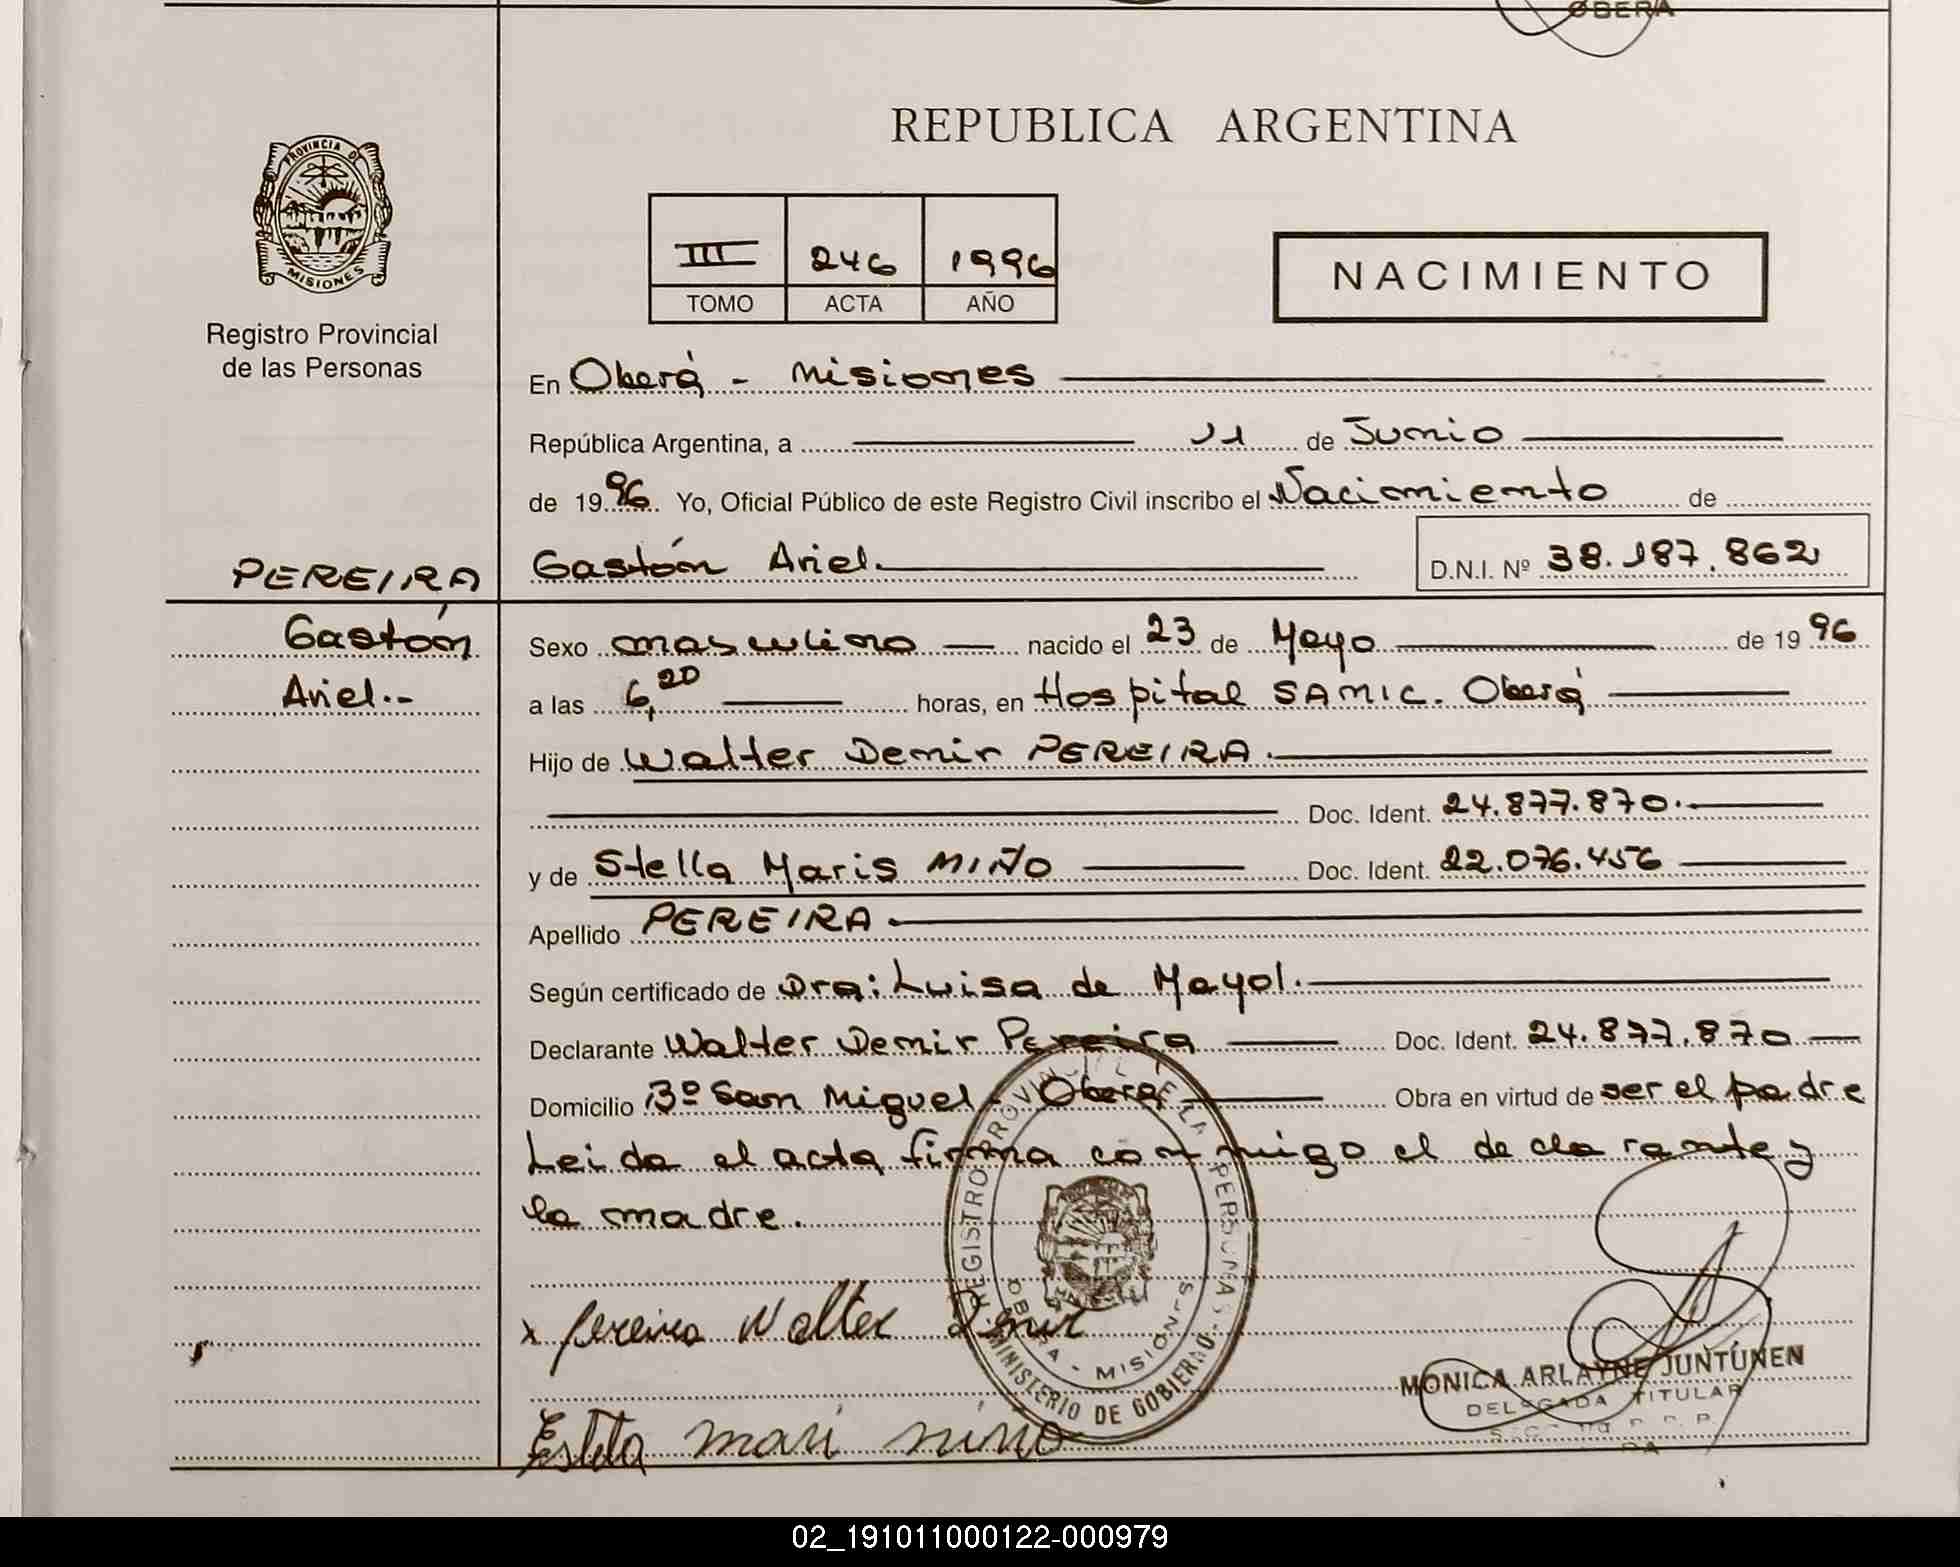 OBERA
REPUBLICA ARGENTINA
PROVINCIA DE
MISIONES
Registro Provincial
de las Personas
III 246 1996
TOMO ACTA AÑO
NACIMIENTO
En Oberá - Misiones
República Argentina, a 11 de Junio
de 1996. Yo, Oficial Público de este Registro Civil inscribo el Nacimiento de
PEREIRA
Gastón Ariel. D.N.I. Nº 38.187.862
Gastón
Ariel.-
Sexo masculino nacido el 23 de Mayo de 1996
a las 6,20 horas, en Hospital SAMIC. Oberá
Hijo de Walter Demir PEREIRA.
Doc. Ident. 24.877.870.
y de Stella Maris MIÑO Doc. Ident. 22.076.456
Apellido PEREIRA.
Según certificado de Dra: Luisa de Mayol.
Declarante Walter Demir Pereira Doc. Ident. 24.877.870
Domicilio Bº San Miguel - Oberá Obra en virtud de ser el padre
Leida el acta firma conmigo el declarante y
la madre.
REGISTRO PROVINCIAL DE LAS PERSONAS
OBERA - MISIONES
MINISTERIO DE GOBIERNO
x Pereira Walter Demir
MONICA ARLAYNE JUNTUNEN
DELEGADA TITULAR
Estela mari miño
02_191011000122-000979